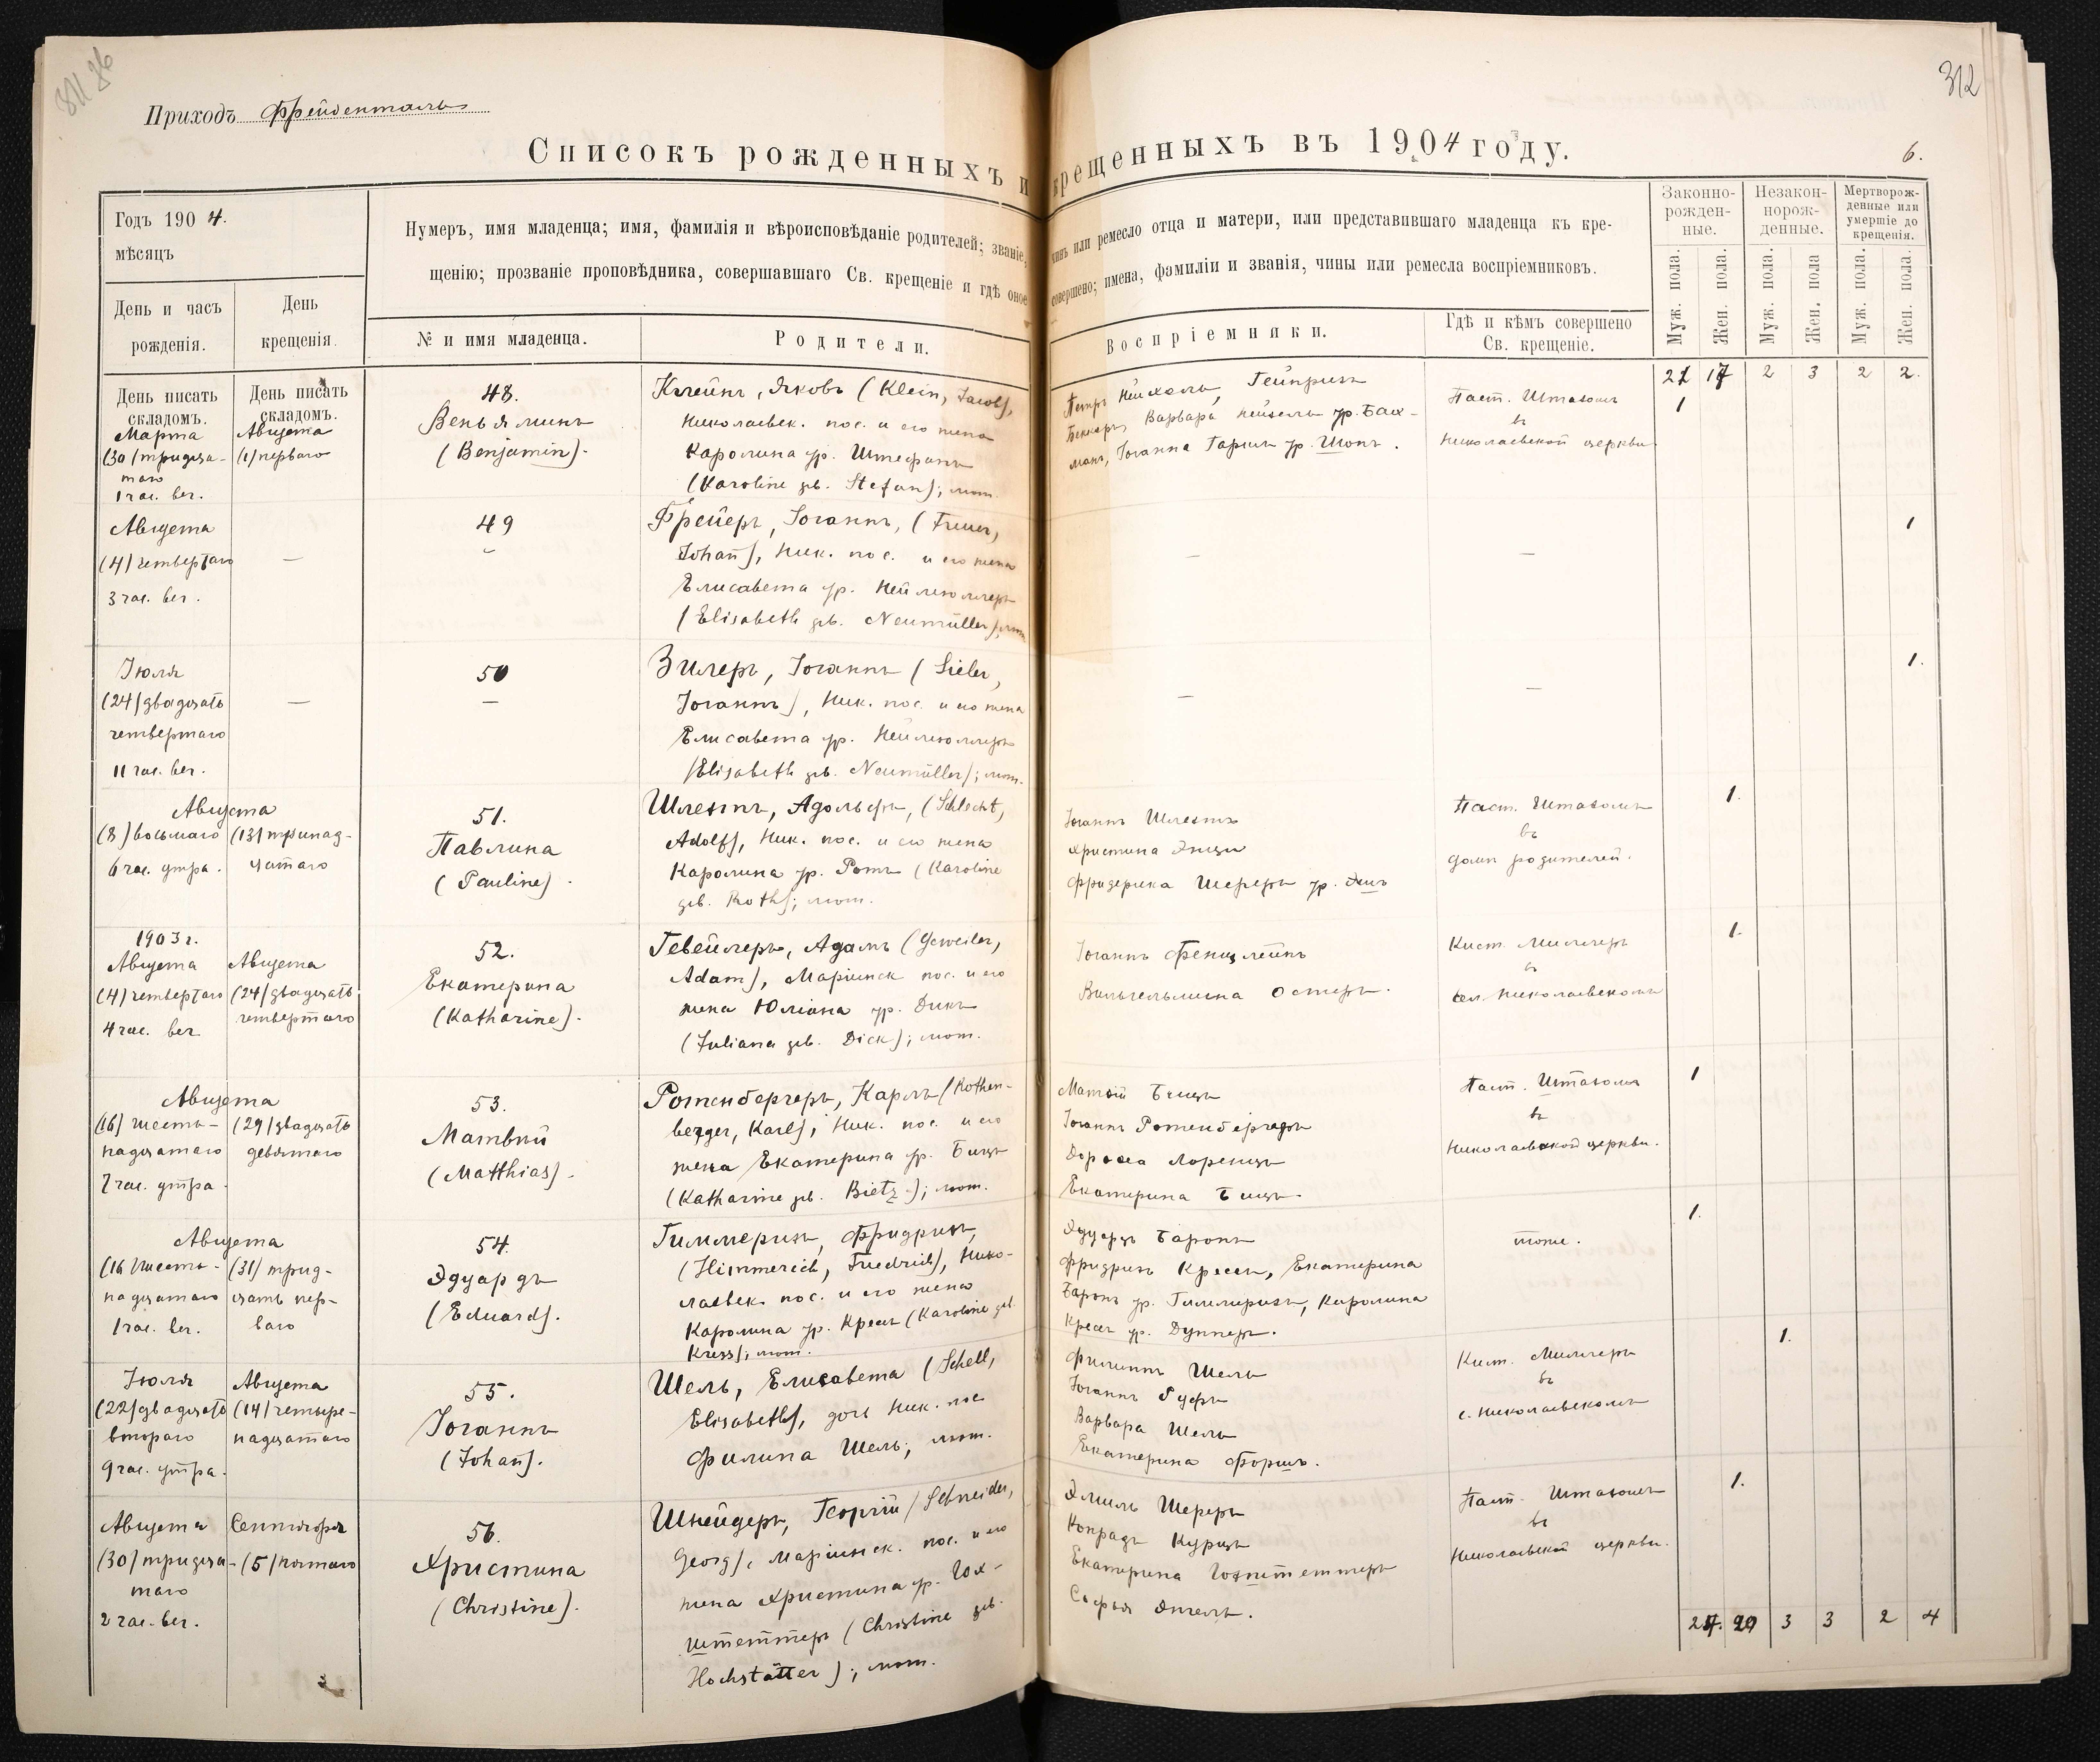 312
Приходъ Фрейденталь
Списокъ рожденныхъ и крещенныхъ въ 1904 году.
6.
Годъ 1904.
мѣсяцъ
День и часъ
рожденія.
День
крещенія.
Нумеръ, имя младенца; имя, фамилія и вѣроисповѣданіе родителей; званіе, чинъ или ремесло отца и матери, или представившаго младенца къ кре-
щенію; прозваніе проповѣдника, совершавшаго Св. крещеніе и гдѣ оное совершено; имена, фамиліи и званія, чины или ремесла воспріемниковъ.
№ и имя младенца.
Родители.
Воспріемники.
Гдѣ и кѣмъ совершено
Св. крещеніе.
Законно-
рожден-
ные.
Незакон-
норож-
денные.
Мертворож-
денные или
умершіе до
крещенія.
Муж. пола.
Жен. пола.
Муж. пола.
Жен. пола
Муж. пола.
Жен. пола.
День писать
складомъ.
Марта
(30) тридца-
таго
1 час. веч.
День писать
складомъ.
Августа
(1) перваго
48.
Веньяминъ
(Benjamin).
Клейнъ, Яковъ (Klein, Jacob),
Николаевск. пос. и его жена
Каролина ур. Штефанъ
(Karoline gb. Stefan); лют.
Гейнрихъ
Варвара ур. Бах-
манъ, Іоганна ур. Шокъ.
Паст. Штахомъ
въ
Николаевской церкви
17 2 3 2 2.
1
Августа
(4) четвертаго
3 час. веч.
—
49
—
Фрейеръ, Іоганнъ,
Johañ), Ник. пос. и его жена
Елисавета ур. Неймюллеръ
(Elisabeth gb. Neumüller); лют.
—
—
1
Іюля
(24) двадцать
четвертаго
11 час. веч.
—
50
—
Зилеръ, Іоганнъ (Sieler,
Іоганнъ), Ник. пос. и его жена
Елисавета ур. Неймюллеръ
(Elisabeth gb. Neumüller); лют.
—
—
1.
Августа
(8) восьмаго
6 час. утра.
(13) тринад-
цатаго
51.
Павлина
(Pauline).
Шлехтъ, Адольфъ, (Schlecht,
Adolf), Ник. пос. и его жена
Каролина ур. Ротъ (Karoline
gb. Roth); лют.
Іоганнъ Шлехтъ
Христина
Фридерика Шереръ ур.
Паст. Штахомъ
въ
домѣ родителей.
1.
1903 г.
Августа
(4) четвертаго
4 час. веч
Августа
(24) двадцать
четвертаго
52.
Екатерина
(Katharine).
Гевейлеръ, Адамъ (Geweiler,
Adam), Маріинск пос. и его
жена Юліана ур. Дикъ
(Juliana gb. Dick); лют.
Іоганнъ Фенцлейнъ
Вильгельмина Остеръ.
Кист. Миллеръ
въ
сел. Николаевскомъ
1.
Августа
(16) шест-
надцатаго
7 час. утра.
(29) двадцать
девятаго
53.
Матвѣй
(Matthias).
Ротенбергеръ, Карлъ (Rothen-
berger, Karl); Ник. пос. и его
жена Екатерина ур. Бицъ
(Katharine gb. Bietz); лют.
Матвѣй Бицъ
Іоганнъ Ротенбергеръ
Дороѳеа Лоренцъ
Екатерина Бицъ.
Паст. Штахомъ
въ
Николаевской церкви.
1
Августа
(16) шест-
надцатаго
1 час. веч.
(31) трид-
цать пер-
ваго
54.
Эдуардъ
(Eduard).
Гиммерихъ, Фридрихъ,
(Himmerich, Friedrich), Нико-
лаевск. пос. и его жена
Каролина ур. Кресъ (Karoline gb.
Kress); лют.
Эдуардъ Баронъ
Фридрихъ Кресъ, Екатерина
Баронъ ур. Гиммерихъ, Каролина
Кресъ ур. Дупперъ.
тоже.
1.
Іюля
(22) двадцать
втораго
9 час. утра.
Августа
(14) четыре-
надцатаго
55.
Іоганнъ
(Johañ).
Шель, Елисавета (Schell,
Elisabeth), дочь Ник. пос
Филипа Шель; лют.
Филиппъ Шель
Іоганнъ Руфъ
Варвара Шель
Екатерина Форшъ.
Кист. Миллеръ
въ
с. Николаевскомъ
1.
Августа
(30) тридца-
таго
2 час. веч.
Сентября
(5) пятаго
56.
Христина
(Christine).
Шнейдеръ, Георгій (Schneider,
Georg), Маріинск. пос. и его
жена Христина ур. Гох-
штеттеръ (Christine gb.
Hochstätter); лют.
Эмиль Шереръ
Конрадъ Курцъ
Екатерина Гохштеттеръ
Софья Энгель.
Паст. Штахомъ
въ
Николаевской церкви.
1.
3 3 2 4